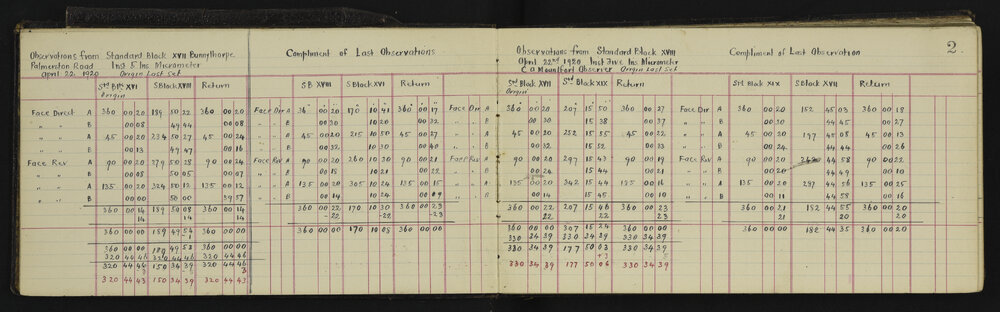 Observations from Standard Block XVII Bunnythorpe
Palmerston Road Ins 5 Ins Micrometer
April 22. 1920 Origin Last Set
Origin
S Block XVIII Return
Face Direct A 360 00 20 189 50 22 360 00 20
" " B 00 08 49 44 00 08
" " A 45 00 20 234 50 27 45 00 24
" " B 00 13 49 47 00 16
Face Rev A 90 00 20 279 50 28 90 00 24
" " B 00 08 50 05 00 07
" " A 135 00 20 324 50 12 135 00 12
" " B 00 00 50 00 59 57
360 00 14 189 50 08 360 00 14
14 14 14
360 00 00 189 49 54 360 00 00
360 00 00 189 49 53 360 00 00
320 44 46 320 44 46 320 44 46
320 44 46 150 34 39 320 44 46
320 44 43 150 34 39 320 44 43
Compliment of Last Observations
S B XVIII S Block XVI Return
Face Dir A 360 00 20 170 10 41 360 00 17
" " B 00 30 10 20 00 32
" " A 45 00 20 215 10 50 45 00 27
" " B 00 32 10 30 00 40
Face Rev A 90 00 20 260 10 30 90 00 21
" " B 00 15 10 21 00 22
" " A 135 00 20 305 10 24 135 00 15
" " B 00 14 10 24 00 09
360 00 22 170 10 30 360 00 23
-22 -22 -23
360 00 00 170 10 08 360 00 00
2.
Observations from Standard Block XVIII
April 22nd 1920 Inst Five Ins Micrometer
C a Mountfort Observer Origin Last Set
Std Block XVIII Std Block XIX Return
Origin
Face Dir A 360 00 20 207 15 50 360 00 27
" " B 00 30 15 38 00 37
" " A 45 00 20 252 15 55 45 00 22
" " B 00 32 15 52 00 33
Face Rev A 90 00 20 297 15 43 90 00 19
" " B 00 24 15 44 00 21
" " A 135 00 20 342 15 44 135 00 16
" " B 00 14 15 45 00 10
360 00 22 207 15 46 360 00 23
22 22 23
360 00 00 307 15 24 360 00 00
330 34 39 330 34 39 330 34 39
330 34 39 177 50 03 330 34 39
+3
330 34 39 177 50 06 330 34 39
Compliment of Last Observation
Std Block XIX S Block XVIII Return
Face Dir A 360 00 20 152 45 03 360 00 18
" " B 00 20 44 45 00 27
" " A 45 00 20 197 45 08 45 00 13
" " B 00 24 44 44 00 26
Face Rev A 90 00 20 44 58 90 00 22
" " B 00 20 44 49 00 10
" " A 135 00 20 287 44 56 135 00 25
" " B 00 11 44 58 00 16
360 00 21 182 44 55 360 00 20
21 20 20
360 00 00 182 44 35 360 00 20